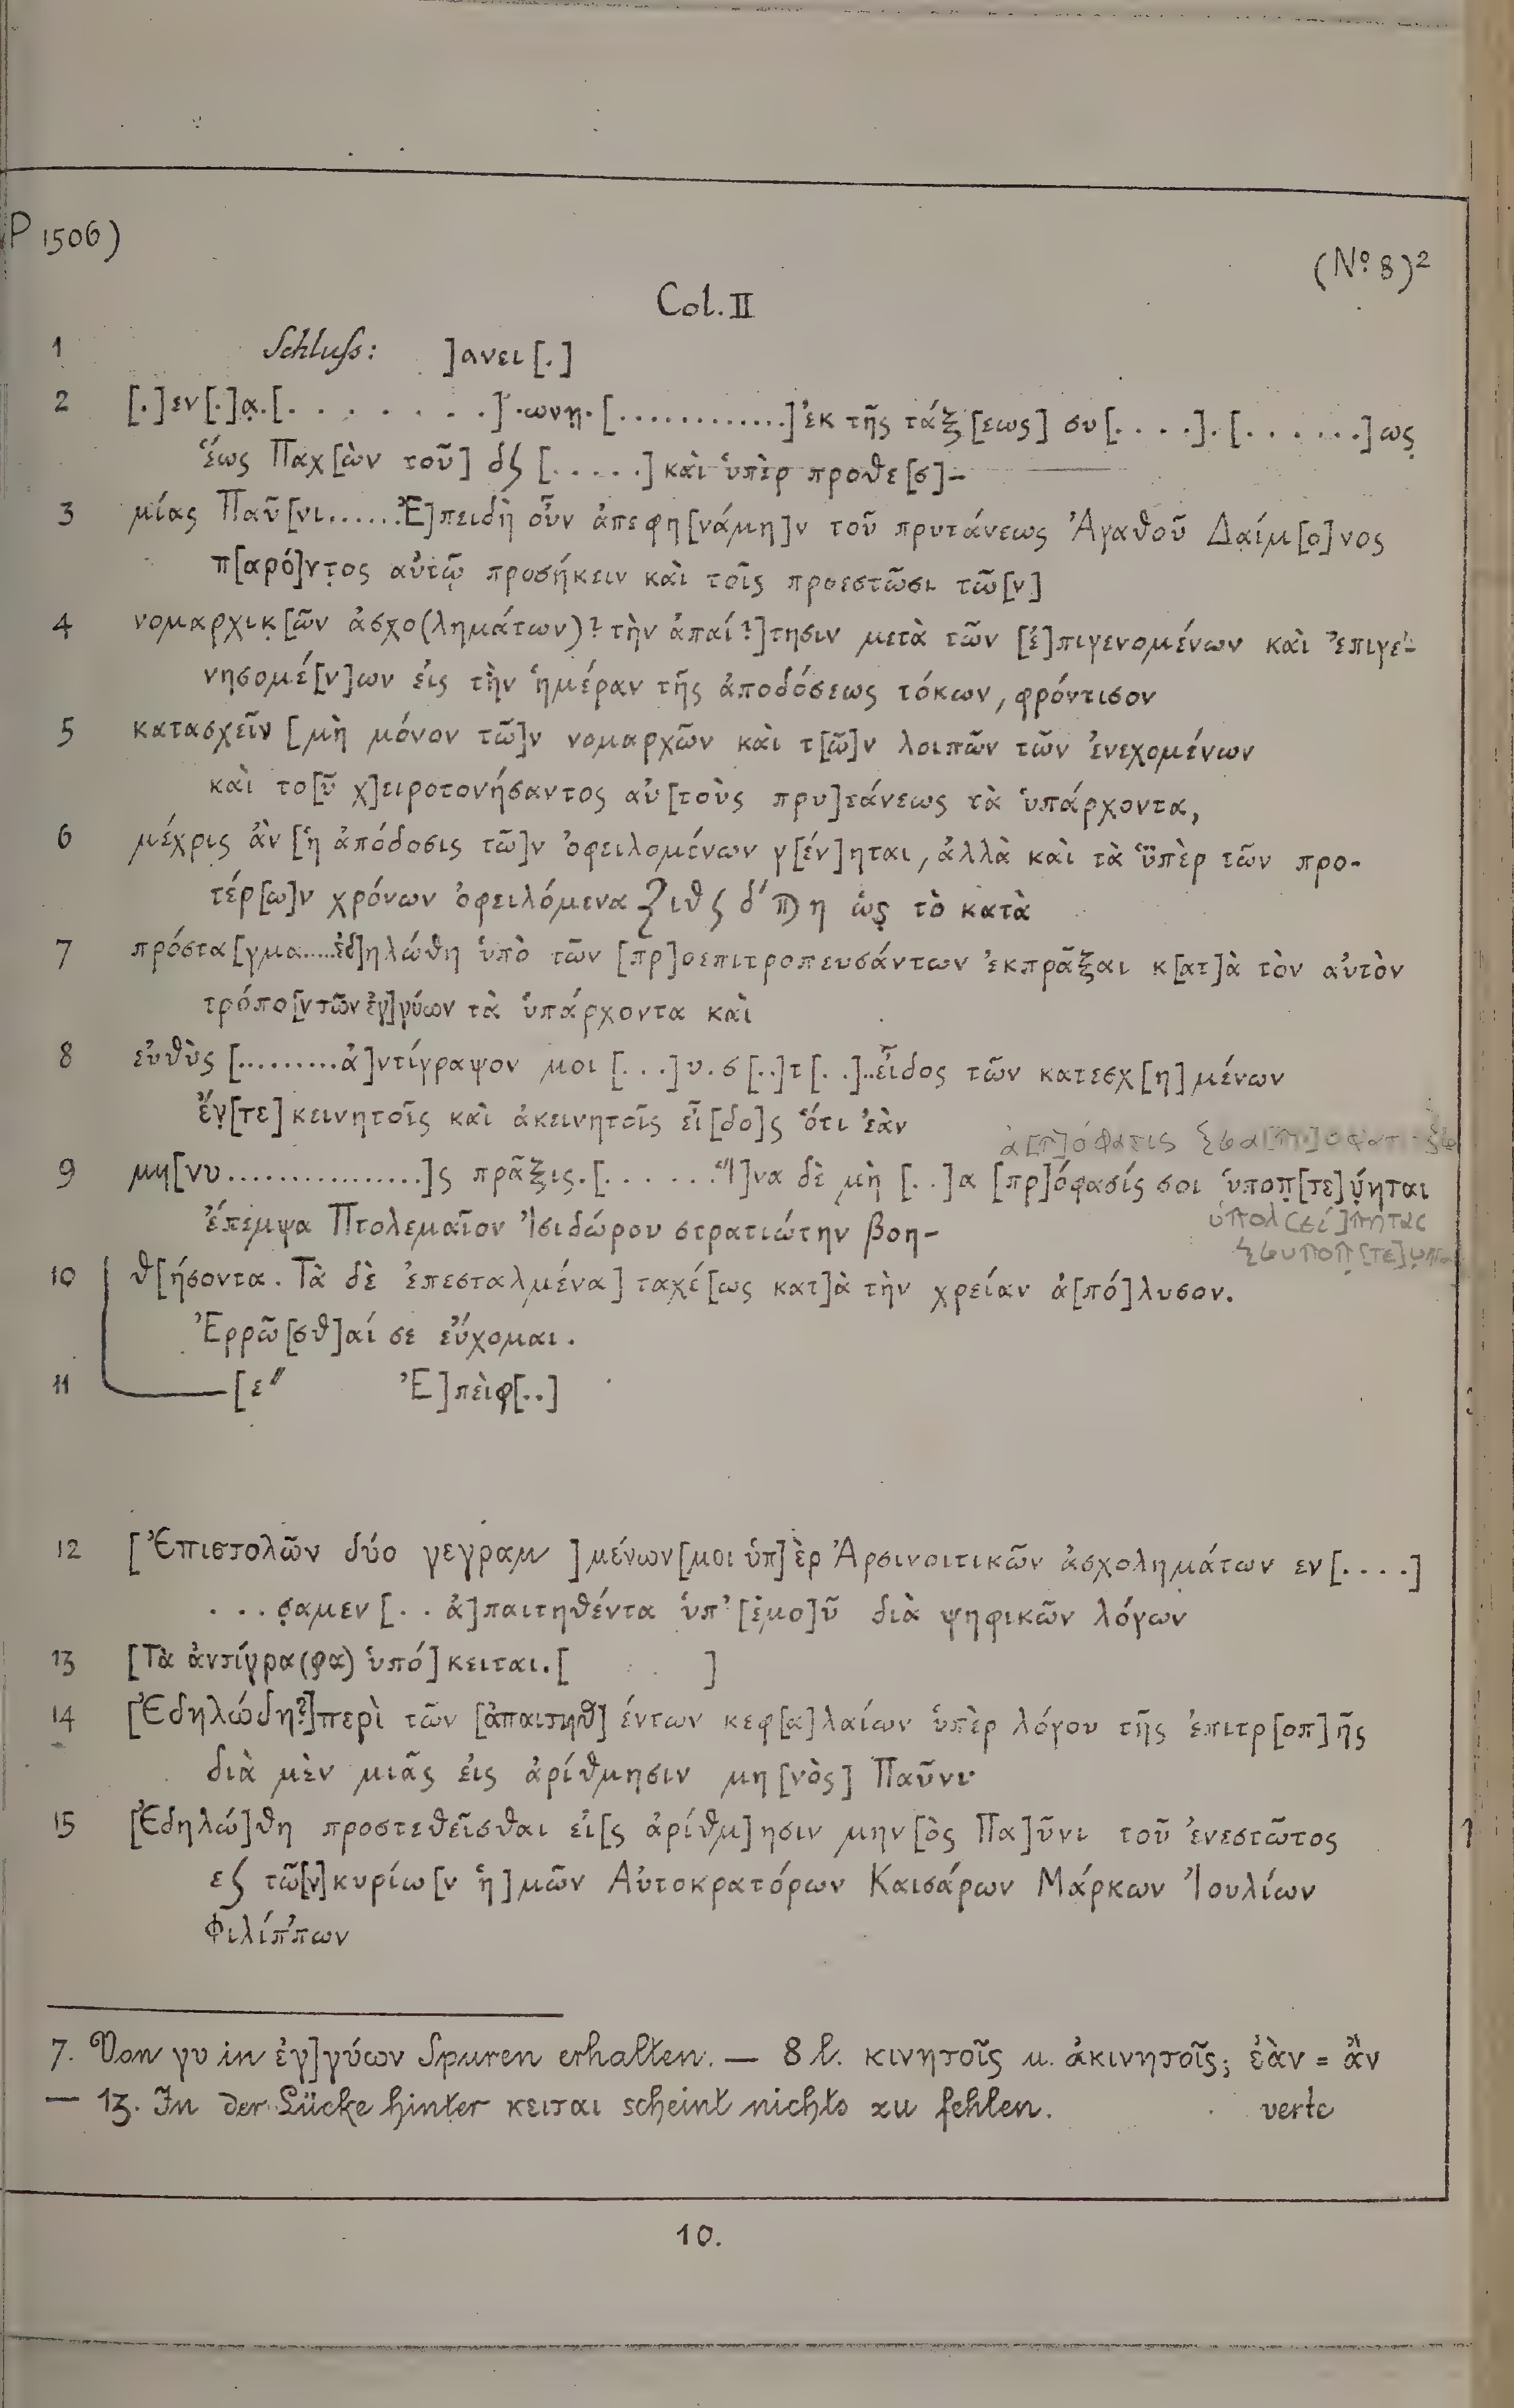 P 1506)
(No 8)2
Col. II
1 Schluſs: ]ανει[.]
2 [.]εν[.]α̣.[. . . . . . . .]·ωνη̣.[............]ἐκ τῆς τάξ[εως] συ[. . . .].[. . . . . .]ως̣
ἕως Παχ[ὼν τοῦ] δϛ [. . . . .] καὶ ὑπὲρ προθε[σ]-
3 μίας Παῦ[νι......Ἐ]πειδὴ οὖν ἀπεφη[νάμη]ν τοῦ πρυτάνεως Ἀγαθοῦ Δα̣ίμ[ο]νος
π[αρό]ντ̣ος αὐτῷ προσήκειν καὶ τοῖς προεστῶσι τῶ[ν]
4 νομαρχικ̣[ῶν ἀσχο(λημάτων)? τὴν ἀπαί?]τησιν μετὰ τῶν [ἐ]πιγενομένων καὶ ἐπιγε-
νησομέ[ν]ων εἰς τὴν ἡμέραν τῆς ἀποδόσεως τόκων, φρόντισον
5 κατασχεῖν [μὴ μόνον τῶ]ν νομαρχῶν καὶ τ[ῶ]ν λοιπῶν τῶν ἐνεχομένων
καὶ το[ῦ χ]ειροτονήσαντος αὐ[τοὺς πρυ]τάνεως τὰ ὑπάρχοντα,
6 μέχρις ἂν [ἡ ἀπόδοσις τῶ]ν ὀφειλομένων γ[έν]ηται, ἀλλὰ καὶ τὰ ὑπὲρ τῶν προ-
τέρ[ω]ν χρόνων ὀφειλόμενα ιθϛ η ὡς̣ τὸ κατὰ
7 πρόστα[γμα.....ἐδ]ηλώθη ὑπὸ τῶν [πρ]οεπιτροπευσάντων ἐκπρᾶξαι κ[ατ]ὰ τὸν αὐτὸν
τρόπο[ν τῶν ἐγ]γύων τὰ ὑπάρχοντα καὶ
8 εὐθὺς [.........ἀ]ντίγραψον μοι [. . .]υ.σ[..]τ[. .]..εἶδος τῶν κατεσχ[η]μένων
ἔν̣[τε] κεινητοῖς καὶ ἀκεινητοῖς εἶ[δο]ς ὅτι ἐὰν
ἀ[π]όφασις
9 μη[νυ................]ς πρᾶξις.[. . . . . .Ἵ]να δὲ μὴ [. .]α [πρ]όφασίς σοι ὑποπ̣[τε]ύ̣ηται
ἔπεμψα Πτολεμαῖον Ἰσιδώρου στρατιώτην βοη-
10 θ[ήσοντα. Τὰ δὲ ἐπεσταλμένα] ταχέ[ως κατ]ὰ τὴν χρείαν ἀ[πό]λυσον.
Ἐρρῶ[σθ]αί σε εὔχομαι.
11 [ε″ Ἐ]πεὶφ[..]
12 [Ἐπιστολῶν δύο γεγραμ ]μένων[μοι ὑπ]ὲρ Ἀρσινοιτικῶν ἀσχολημάτων εν[. . . .]
. . . σ̣αμεν[. . ἀ]παιτηθέντα ὑπ' [ἐμο]ῦ διὰ ψηφικῶν λόγων
13 [Τὰ ἀντίγρα(φα) ὑπό]κειται.[ ]
14 [Ἐδηλώθη?]περὶ τῶν [ἀπαιτηθ]έντων κεφ[α]λαίων ὑπὲρ λόγου τῆς ἐπιτρ[οπ]ῆς
διὰ μὲν μιᾶς εἰς ἀρίθμησιν μη[νὸς] Παῦνι
15 [Ἐδηλώ]θη προστεθεῖσθαι εἰ[ς ἀρίθμ]ησιν μην[ὸς Πα]ῦνι τοῦ ἐνεστῶτος
εϛ τῶ[ν]κυρίω[ν ἡ]μῶν Αὐτοκρατόρων Καισάρων Μάρκων Ἰουλίων
Φιλίππων
7. Von γυ in ἐγ]γύων Spuren erhalten. — 8 l. κινητοῖς u. ἀκινητοῖς; ἐὰν = ἂν
— 13. In der Lücke hinter κειται scheint nichts zu fehlen. verte
10.